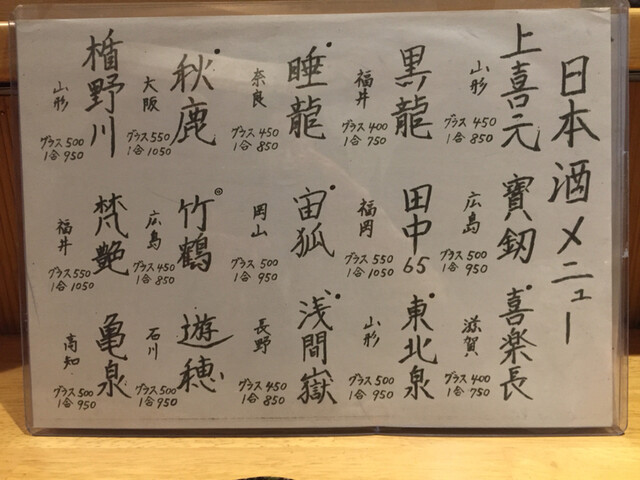 日本酒メニュー
上喜元
山形
グラス450
1合850
黒龍
福井
グラス400
1合750
睡龍
奈良
グラス450
1合850
秋鹿
大阪
グラス550
1合1050
楯野川
山形
グラス500
1合950
寶剱
広島
グラス500
1合950
田中65
福岡
グラス550
1合1050
宙狐
岡山
グラス500
1合950
竹鶴
広島
グラス450
1合850
梵艶
福井
グラス550
1合1050
喜楽長
滋賀
グラス400
1合750
東北泉
山形
グラス500
1合950
浅間嶽
長野
グラス450
1合850
遊穂
石川
グラス500
1合950
亀泉
高知
グラス500
1合950